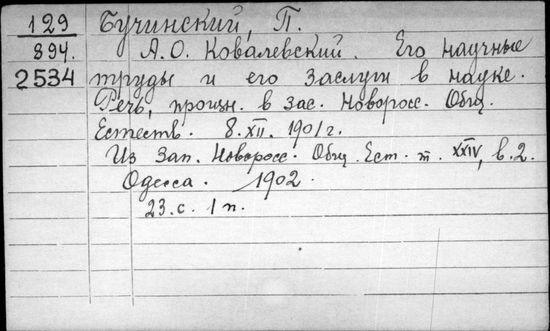 129 Бучинский, П.
894. А. О. Ковалевский. Его научные
2534 труды и его заслуги в науке.
Речь, произн. в зас. Новоросс. Общ.
Естеств. 8.XII. 1901 г.
Из Зап. Новоросс. Общ. Ест. т. XXIV, в. 2.
Одесса. 1902.
23. с. 1 п.